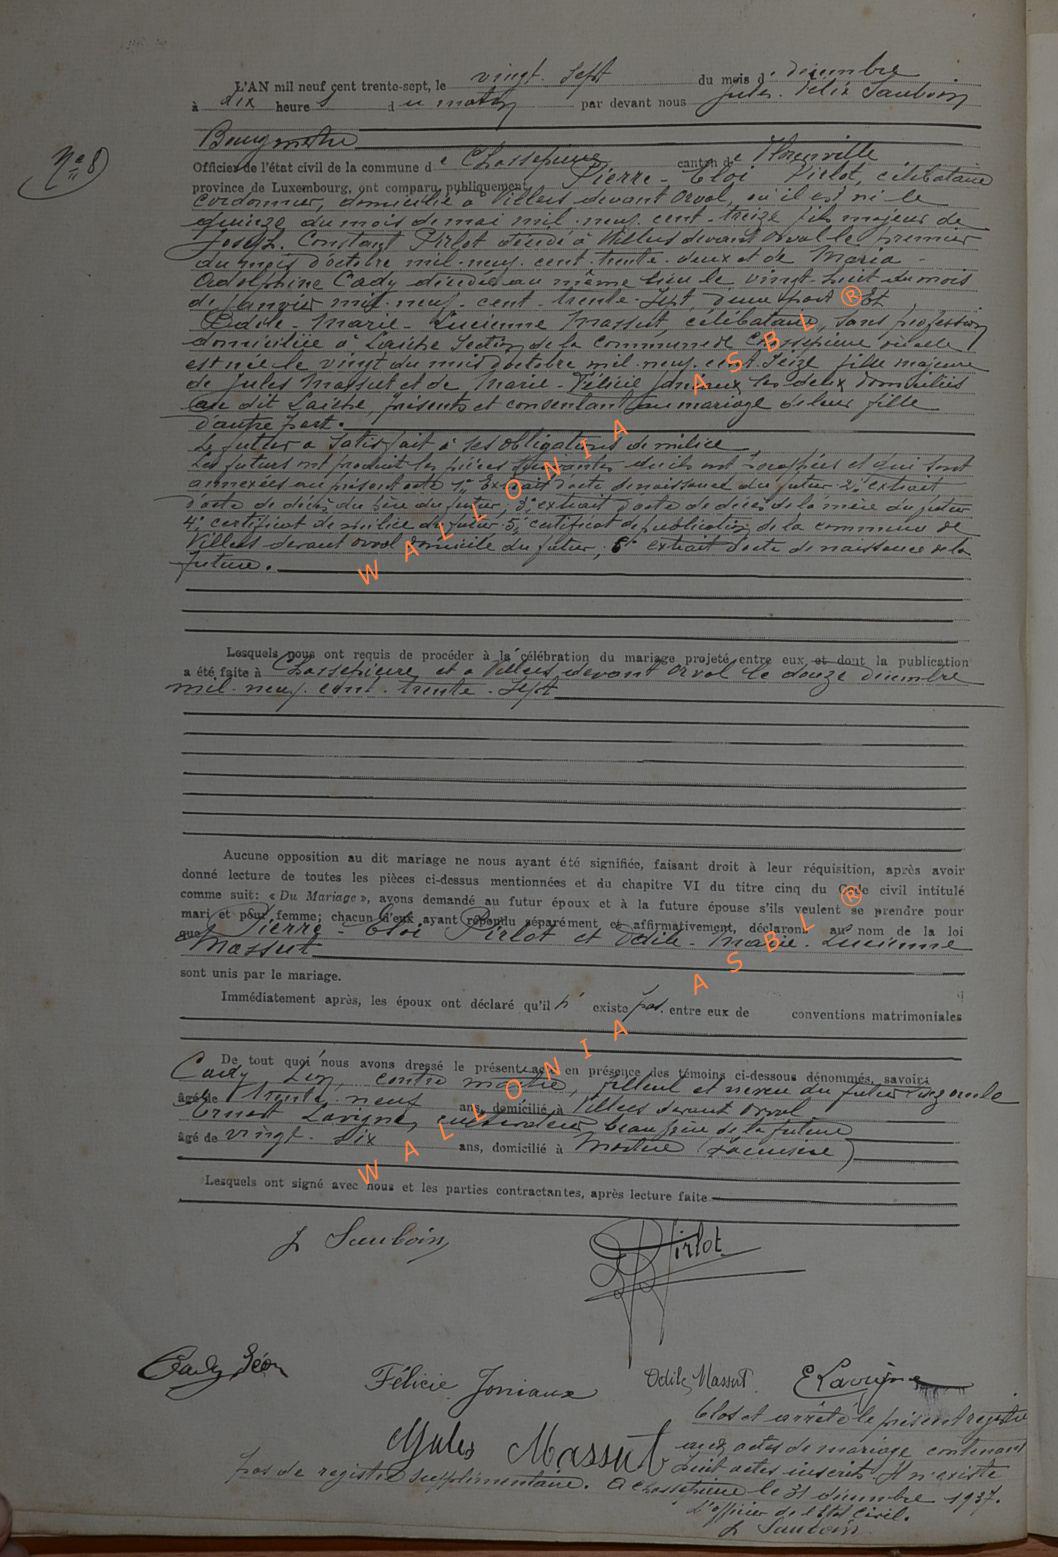 L'AN mil neuf cent trente-sept, le vingt-sept du mois de décembre
à dix heures du matin par devant nous Jules Félix Sauboin
Bourgmestre
N° 8
Officier de l'état civil de la commune de Chassepierre canton de Florenville
province de Luxembourg, ont comparu publiquement Pierre-Eloi Pirlot, célibataire
cordonnier, domicilié à Villers devant Orval, où il est né le
quinze du mois de mai mil-neuf-cent-treize fils majeur de
Joseph-Constant Pirlot décédé à Villers devant Orval le premier
du mois d'octobre mil-neuf-cent-trente-deux et de Maria-
Adolphine Cady décédée au même lieu le vingt-huit du mois
de janvier mil-neuf-cent-trente-sept, d'une part Et
Odile-Marie-Lucienne Massut, célibataire, sans profession
domiciliée à Laiche Section de la commune de Chassepierre où elle
est née le vingt du mois d'octobre mil-neuf-cent-seize fille majeure
de Jules Massut et de Marie-Félicie Joniaux les deux domiciliés
au dit Laiche, présents et consentant au mariage de leur fille
d'autre part.
Le futur a satisfait à ses obligations de milice
Les futurs ont produit les pièces suivantes et qui sont
annexées au présent acte 1° Extrait d'acte de naissance du futur 2° extrait
d'acte de décès du père du futur, 3° extrait d'acte de décès de la mère du futur
4° certificat de milice du futur 5° certificat de publication de la commune de
Villers devant Orval domicile du futur, 6° extrait d'acte de naissance de la
future.
Lesquels nous ont requis de procéder à la célébration du mariage projeté entre eux et dont la publication
a été faite à Chassepierre et à Villers devant Orval le douze décembre
mil-neuf-cent-trente-sept
Aucune opposition au dit mariage ne nous ayant été signifiée, faisant droit à leur réquisition, après avoir
donné lecture de toutes les pièces ci-dessus mentionnées et du chapitre VI du titre cinq du Code civil intitulé
comme suit: « Du Mariage », avons demandé au futur époux et à la future épouse s'ils veulent se prendre pour
mari et pour femme; chacun d'eux ayant répondu séparément et affirmativement, déclarons au nom de la loi
que Pierre-Eloi Pirlot et Odile-Marie-Lucienne
Massut
sont unis par le mariage.
Immédiatement après, les époux ont déclaré qu'il n'existe pas entre eux de conventions matrimoniales
De tout quoi nous avons dressé le présent acte en présence des témoins ci-dessous dénommés, savoir:
Cady Léon, contre maître, filleul et neveu du futur
âgé de trente-neuf ans, domicilié à Villers devant Orval
Ernest Lavigne, cultivateur, beau frère de la future
âgé de vingt-six ans, domicilié à Moulin
Lesquels ont signé avec nous et les parties contractantes, après lecture faite
J Sauboin
Pirlot
Cady Léon
Félicie Joniaux
Odile Massut
E Lavigne
Jules Massut
Clos et arrêté le présent registre
aux actes de mariage contenant
huit actes inscrits Il n'existe
pas de registre supplémentaire. A Chassepierre le 31 décembre 1937.
L'officier de l'Etat Civil.
J Sauboin
WALLONIA ASBL ®
WALLONIA ASBL ®